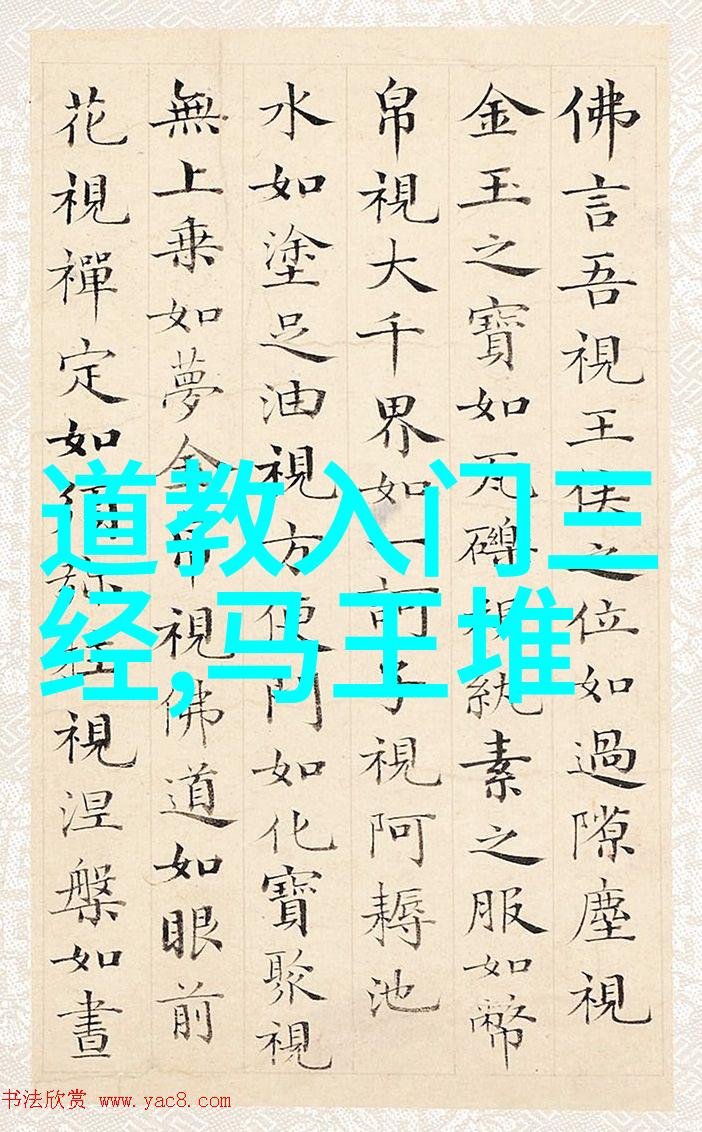 佛言吾視王侯之位如過隙塵視
金玉之寶如瓦礫視紈素之服如幣
帛視大千界如一訶子視阿耨池
水如塗足油視方便門如化寶聚視
無上乗如夢金帛視佛道如眼前
花視禪定如須弥柱視涅槃如晝
道教入门三
经,马王堆
书法欣赏 www.yac8.com